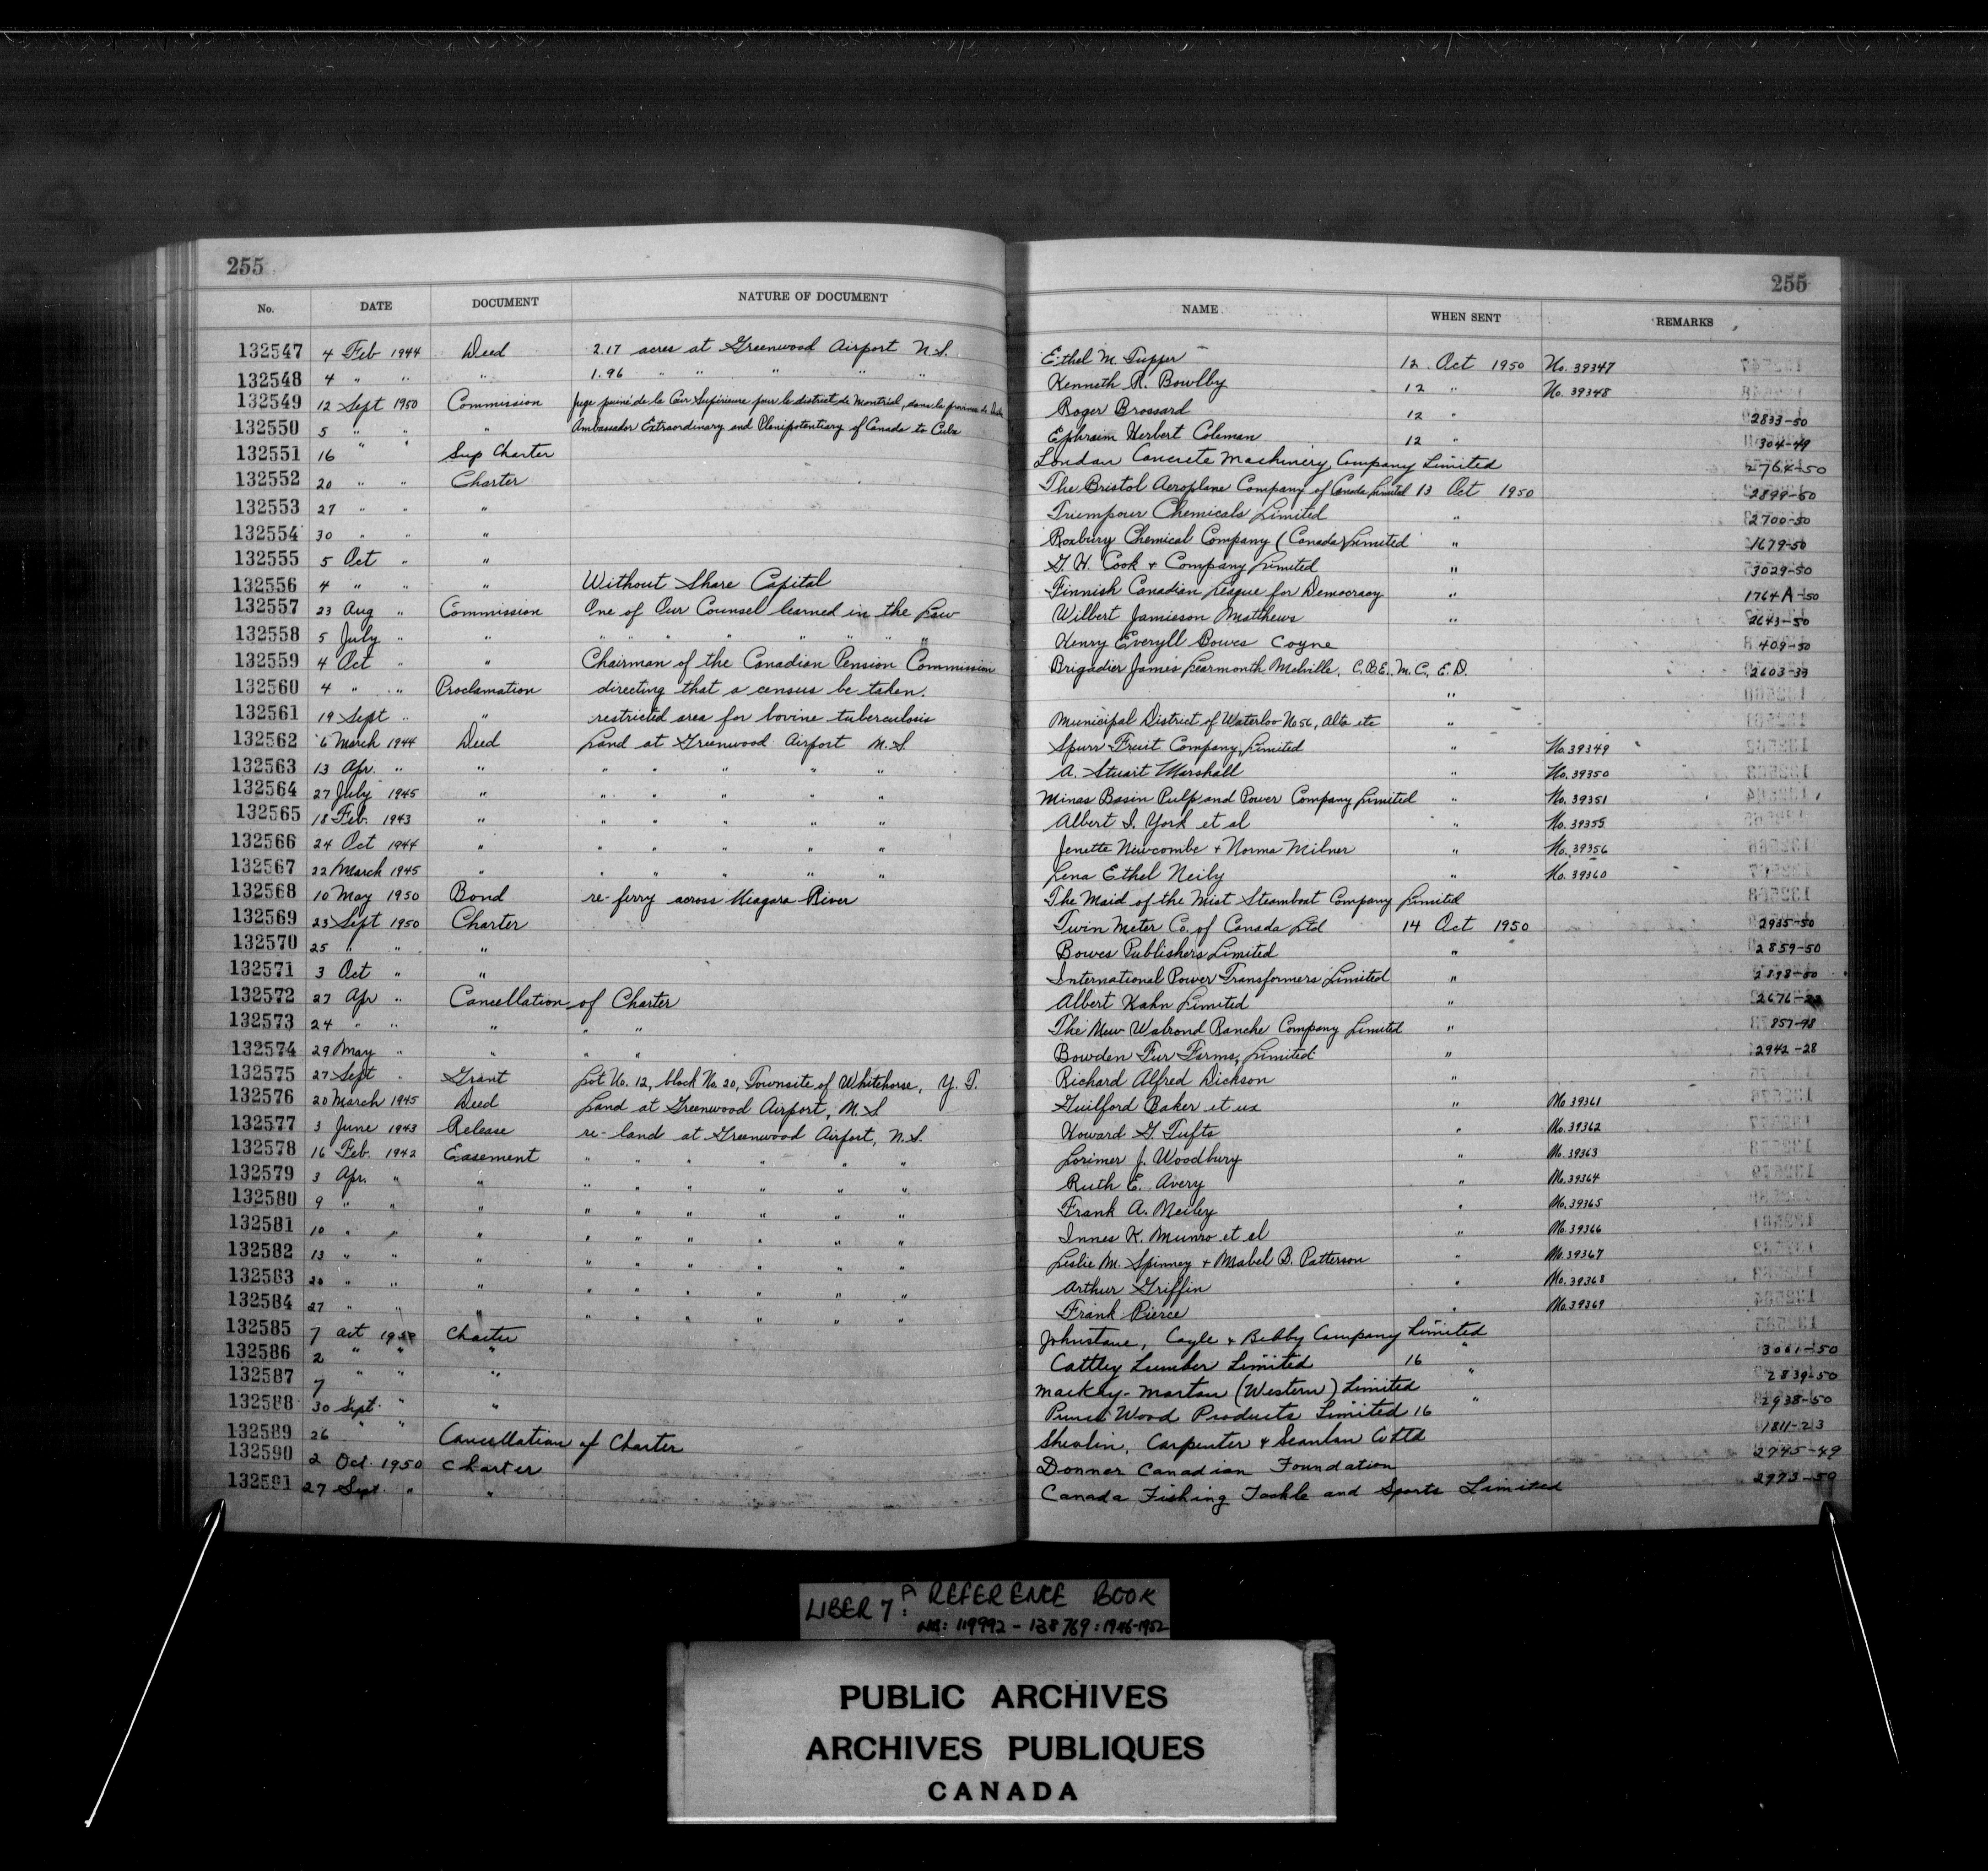 255
255
No. DATE DOCUMENT NATURE OF DOCUMENT NAME WHEN SENT REMARKS
132547 4 Feb 1944 Deed 2.17 acres at Greenwood Airport N.S. Ethel M. Tupper 12 Oct 1950 No. 39347
132548 4 " " " 1.96 " " " " Kenneth R. Bowlby 12 " No. 39348
132549 12 Sept 1950 Commission Juge puiné de la Cour Supérieure pour le district de Montréal, dans la province de Roger Brossard 12 " 2833-50
132550 5 " " " Ambassador Extraordinary and Plenipotentiary of Canada to Cuba Ephraim Herbert Coleman 12 " 304-49
132551 16 " " Sup Charter London Concrete Machinery Company Limited 2764-50
132552 20 " " Charter The Bristol Aeroplane Company of Canada Limited 13 Oct 1950 2899-50
132553 27 " " " Trumpour Chemicals Limited " 2700-50
132554 30 " " " Roxbury Chemical Company (Canada) Limited " 1679-50
132555 5 Oct " " G. H. Cook + Company Limited " 3029-50
132556 4 " " " Without Share Capital Finnish Canadian League for Democracy " 1764A-50
132557 23 Aug " Commission One of Our Counsel learned in the Law Wilbert Jamieson Matthews " 2643-50
132558 5 July " " " " " " " " " " Henry Everyll Bowes Coyne 409-50
132559 4 Oct " " Chairman of the Canadian Pension Commission Brigadier James Learmonth Melville, C.B.E., M.C., E.D. 2603-33
132560 4 " " Proclamation directing that a census be taken. "
132561 19 Sept " " restricted area for bovine tuberculosis Municipal District of Waterloo No 56, Alta etc "
132562 6 March 1944 Deed Land at Greenwood Airport N.S Spurr Fruit Company, Limited " No. 39349
132563 13 Apr. " " " " " " " A. Stuart Marshall " No. 39350
132564 27 July 1945 " " " " " " Minas Basin Pulp and Power Company Limited " No. 39351
132565 18 Feb. 1943 " " " " " " Albert I. York et al " No. 39355
132566 24 Oct 1944 " " " " " " Jenette Newcombe + Norma Milner " No. 39356
132567 22 March 1945 " " " " " " Lena Ethel Neily " No. 39360
132568 10 May 1950 Bond re-ferry across Niagara River The Maid of the Mist Steamboat Company Limited
132569 23 Sept 1950 Charter Twin Meter Co. of Canada Ltd 14 Oct 1950 2935-50
132570 25 " " " Bowes Publishers Limited " 2859-50
132571 3 Oct " " International Power Transformers Limited " 2898-50
132572 27 Apr " Cancellation of Charter Albert Kahn Limited " 2676-
132573 24 " " " " " The New Walrond Ranche Company Limited " 857-98
132574 29 May " " " " Bowden Fur Farms, Limited " 2942-28
132575 27 Sept " Grant Lot No. 12, block No. 20, Townsite of Whitehorse, Y. T. Richard Alfred Dickson "
132576 20 March 1945 Deed Land at Greenwood Airport, N.S Guilford Baker et ux " No 39361
132577 3 June 1943 Release re-land at Greenwood Airport, N.S. Howard G. Tufts " No. 39362
132578 16 Feb. 1942 Easement " " " " " " Lorimer J. Woodbury " No. 39363
132579 3 Apr. " " " " " " " " Ruth E. Avery " No. 39364
132580 9 " " " " " " " " " Frank A. Neiley " No. 39365
132581 10 " " " " " " " " " Innes K. Munro et al " No. 39366
132582 13 " " " " " " " " " Leslie M. Spinney + Mabel B. Patterson " No. 39367
132583 20 " " " " " " " " " Arthur Griffin " No. 39368
132584 27 " " " " " " " " " Frank Pierce " No. 39369
132585 7 Oct 1950 Charter Johnstone, Coyle + Bibby Company Limited "
132586 2 " " " Cattley Lumber Limited 16 3061-50
132587 7 " " " Mackay-Morton (Western) Limited " 2839-50
132588 30 Sept. " " Wood Products Limited 16 " 2938-50
132589 26 " " Cancellation of Charter Shevlin, Carpenter & Scanlan Co Ltd 1811-23
132590 2 Oct. 1950 Charter Donner Canadian Foundation 2745-49
132591 27 Sept. " " Canada Fishing Tackle and Sports Limited 2973-50
LIBER 7A: REFERENCE BOOK
NOS: 119992 - 138769: 1946-1952
PUBLIC ARCHIVES
ARCHIVES PUBLIQUES
CANADA